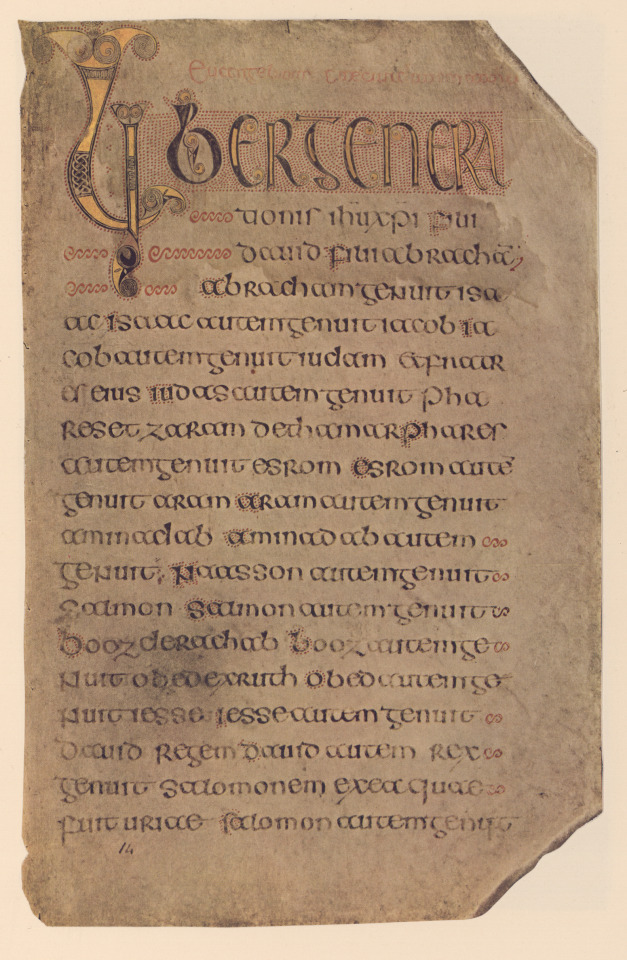 LIBER GENERA
tionis ihu xpi filii
dauid filii abracha
abracham genuit isa
ac isaac autem genuit iacob ia
cob autem genuit iudam et fratr
es eius iudas autem genuit pha
res et zaram de thamar phares
autem genuit esrom esrom aute
genuit aram aram autem genuit
aminadab aminadab autem
genuit naasson autem genuit
salmon salmon autem genuit
booz de rachab booz autem ge
nuit obed ex ruth obed autem ge
nuit iesse iesse autem genuit
dauid regem dauid autem rex
genuit salomonem ex ea quae
fuit uriae salomon autem genuit
14